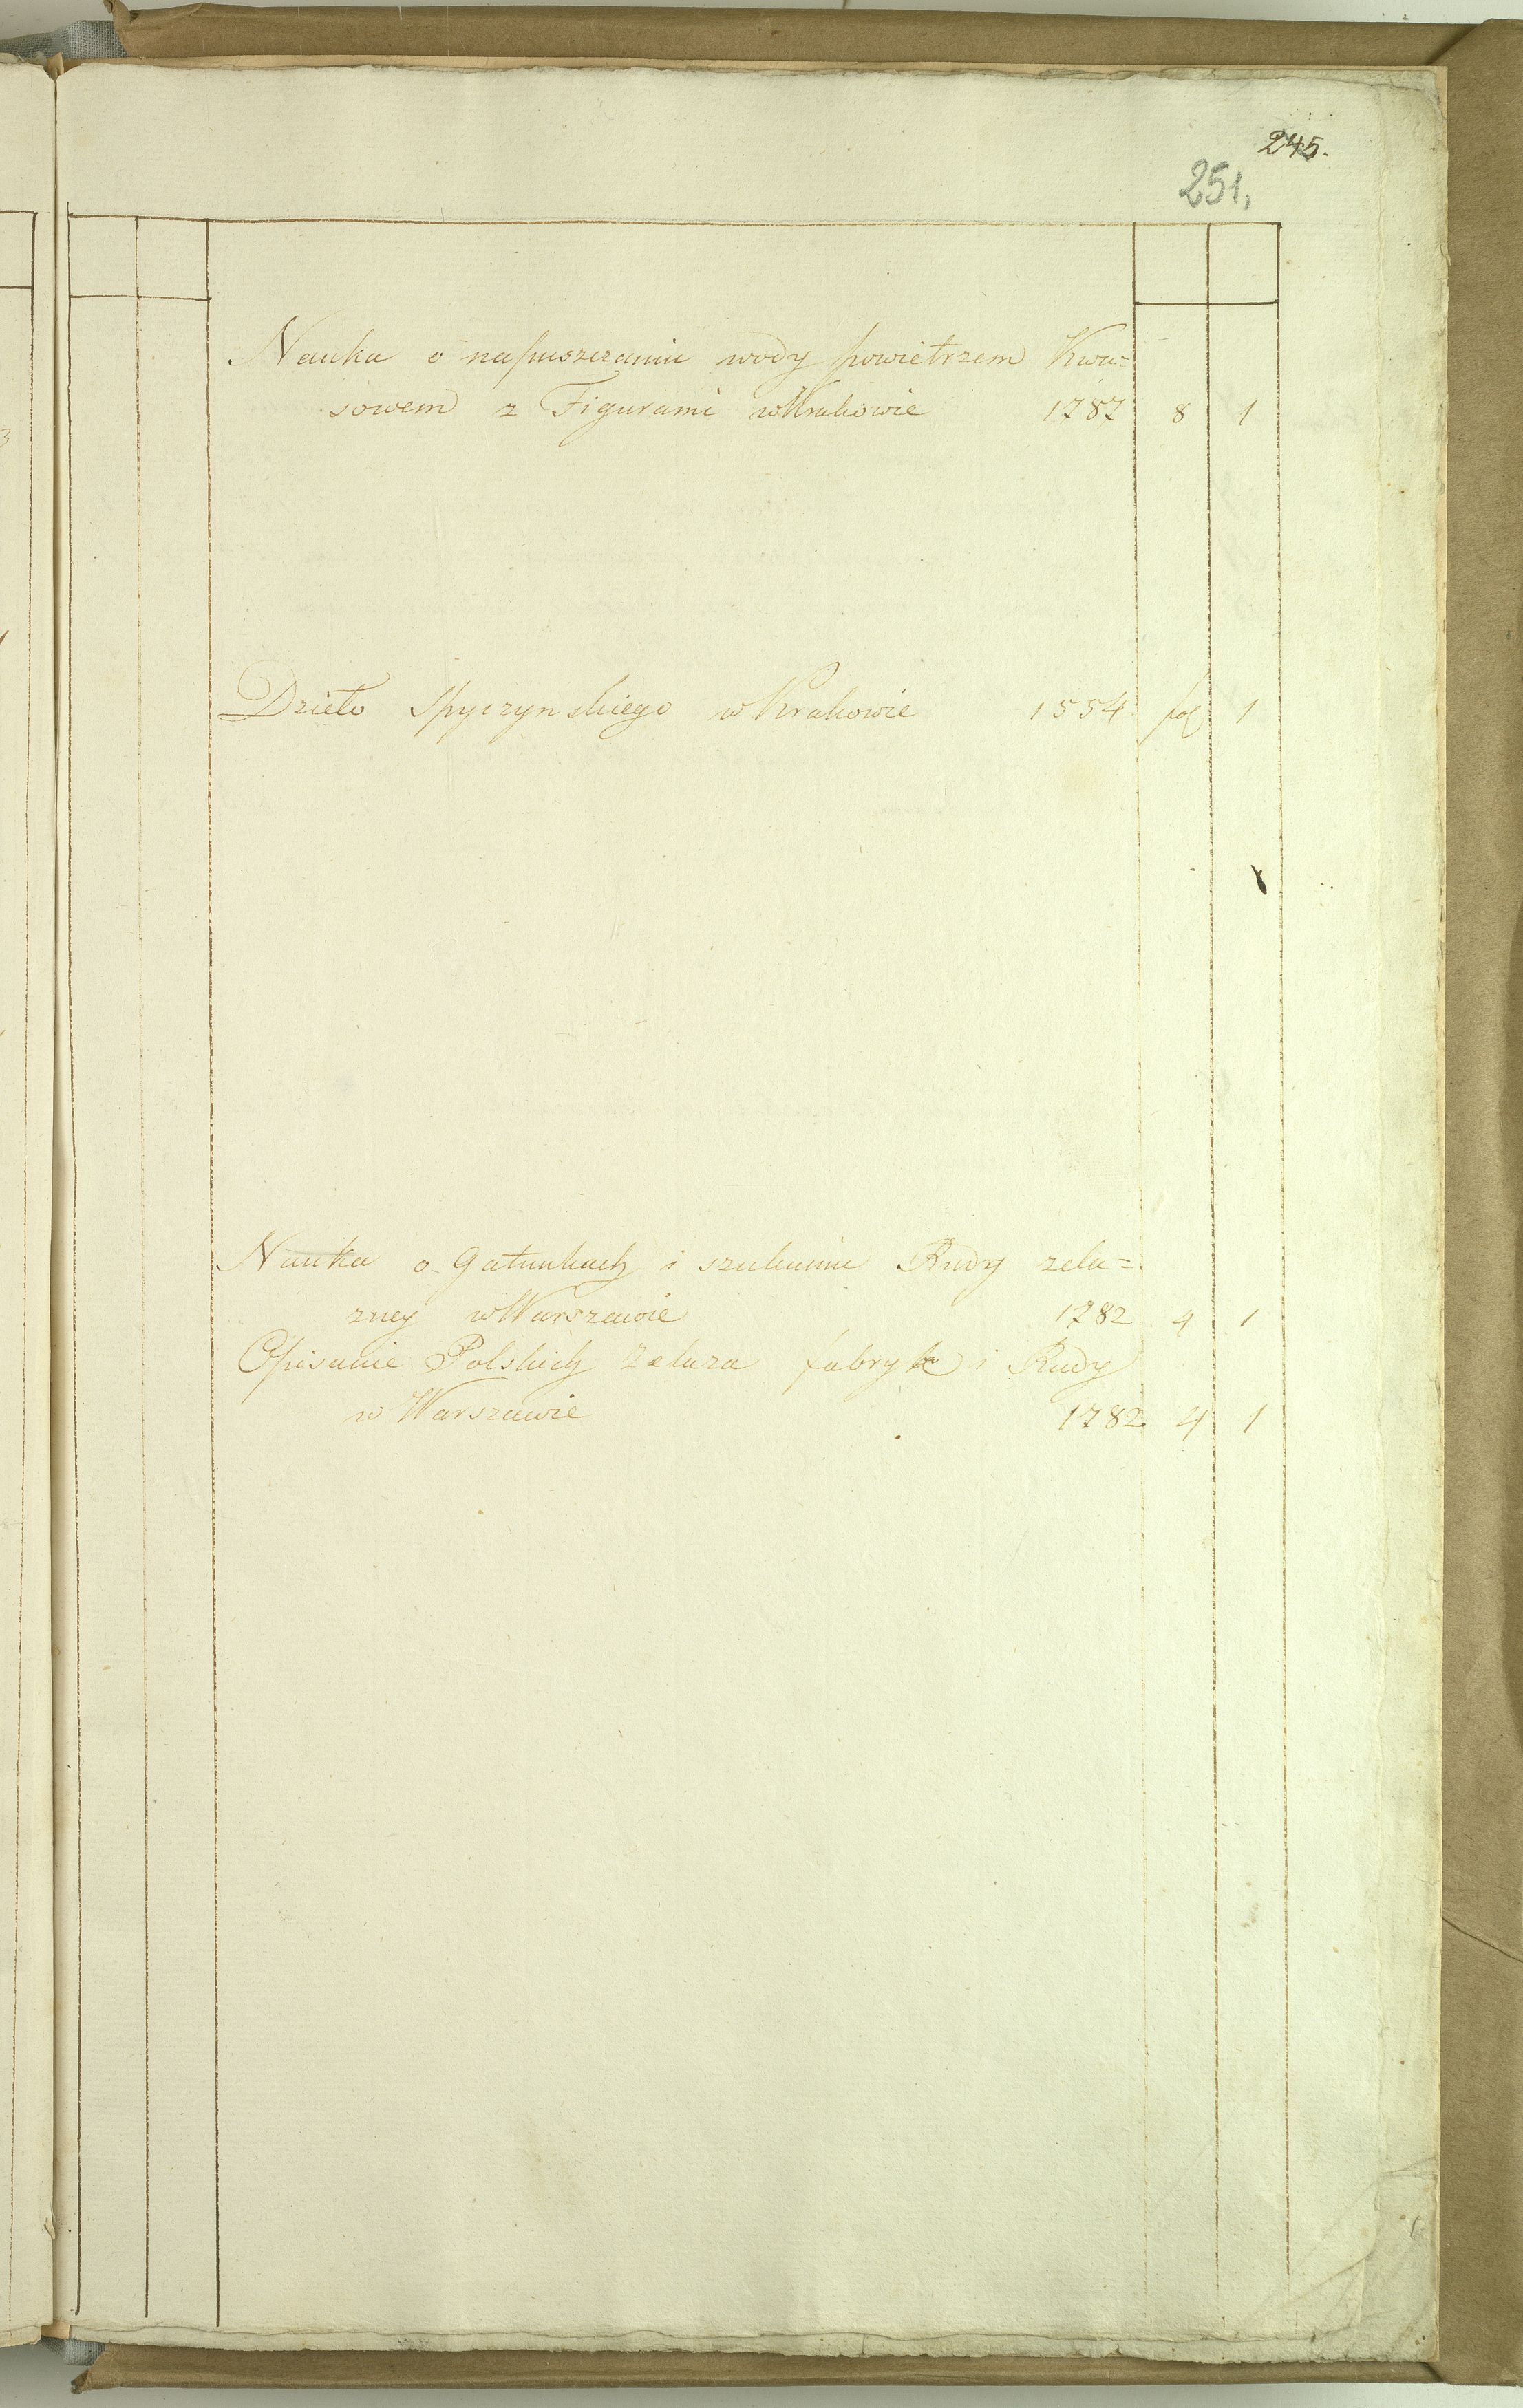 245.
251,
Nauka o napuszczaniu wody powietrzem Kwa=
sowem z Figurami w Krakowie 1787 8 1
Dzieło Spyczynskiego w Krakowie 1554 fol 1
Nauka o Gatunkach i szukaniu Rudy zela=
zney w Warszawie 1782 4 1
Opisanie Polskich Zelaza fabryk i Rudy
w Warszawie 1782 4 1